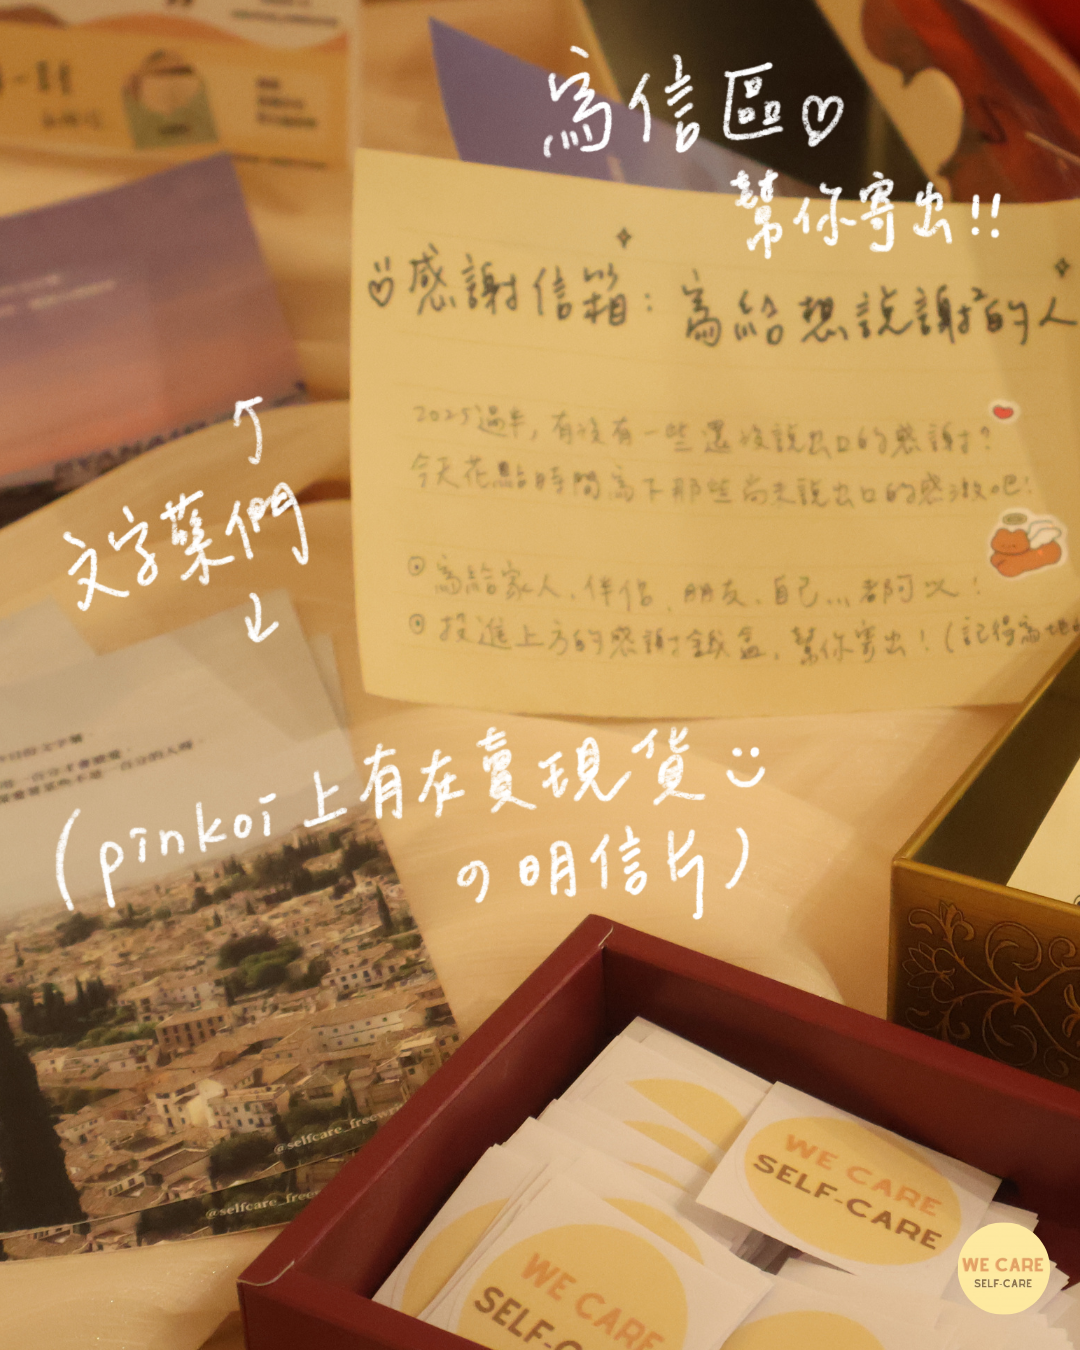 寫信區♡
幫你寄出!!
感謝信箱：寫給想說謝謝的人
2025過半，有沒有一些還沒說出口的感謝？
今天花點時間寫下那些尚未說出口的感激吧！
⊙ 寫給家人、伴侶、朋友、自己... 都可以！
⊙ 投進上方的感謝鐵盒，幫你寄出！(記得寫地
↑
文字葉們
↓
(pinkoi上有在賣現貨
の明信片)
@selfcare_freewri
@selfcare_free
WE CARE
SELF-CARE
WE CARE
SELF-C
WE CARE
SELF-CARE